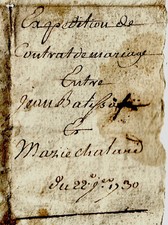 Expedition de
Contrat de mariage
Entre
Jean Batis
&
Marie chaland
du 22e 9bre 1730